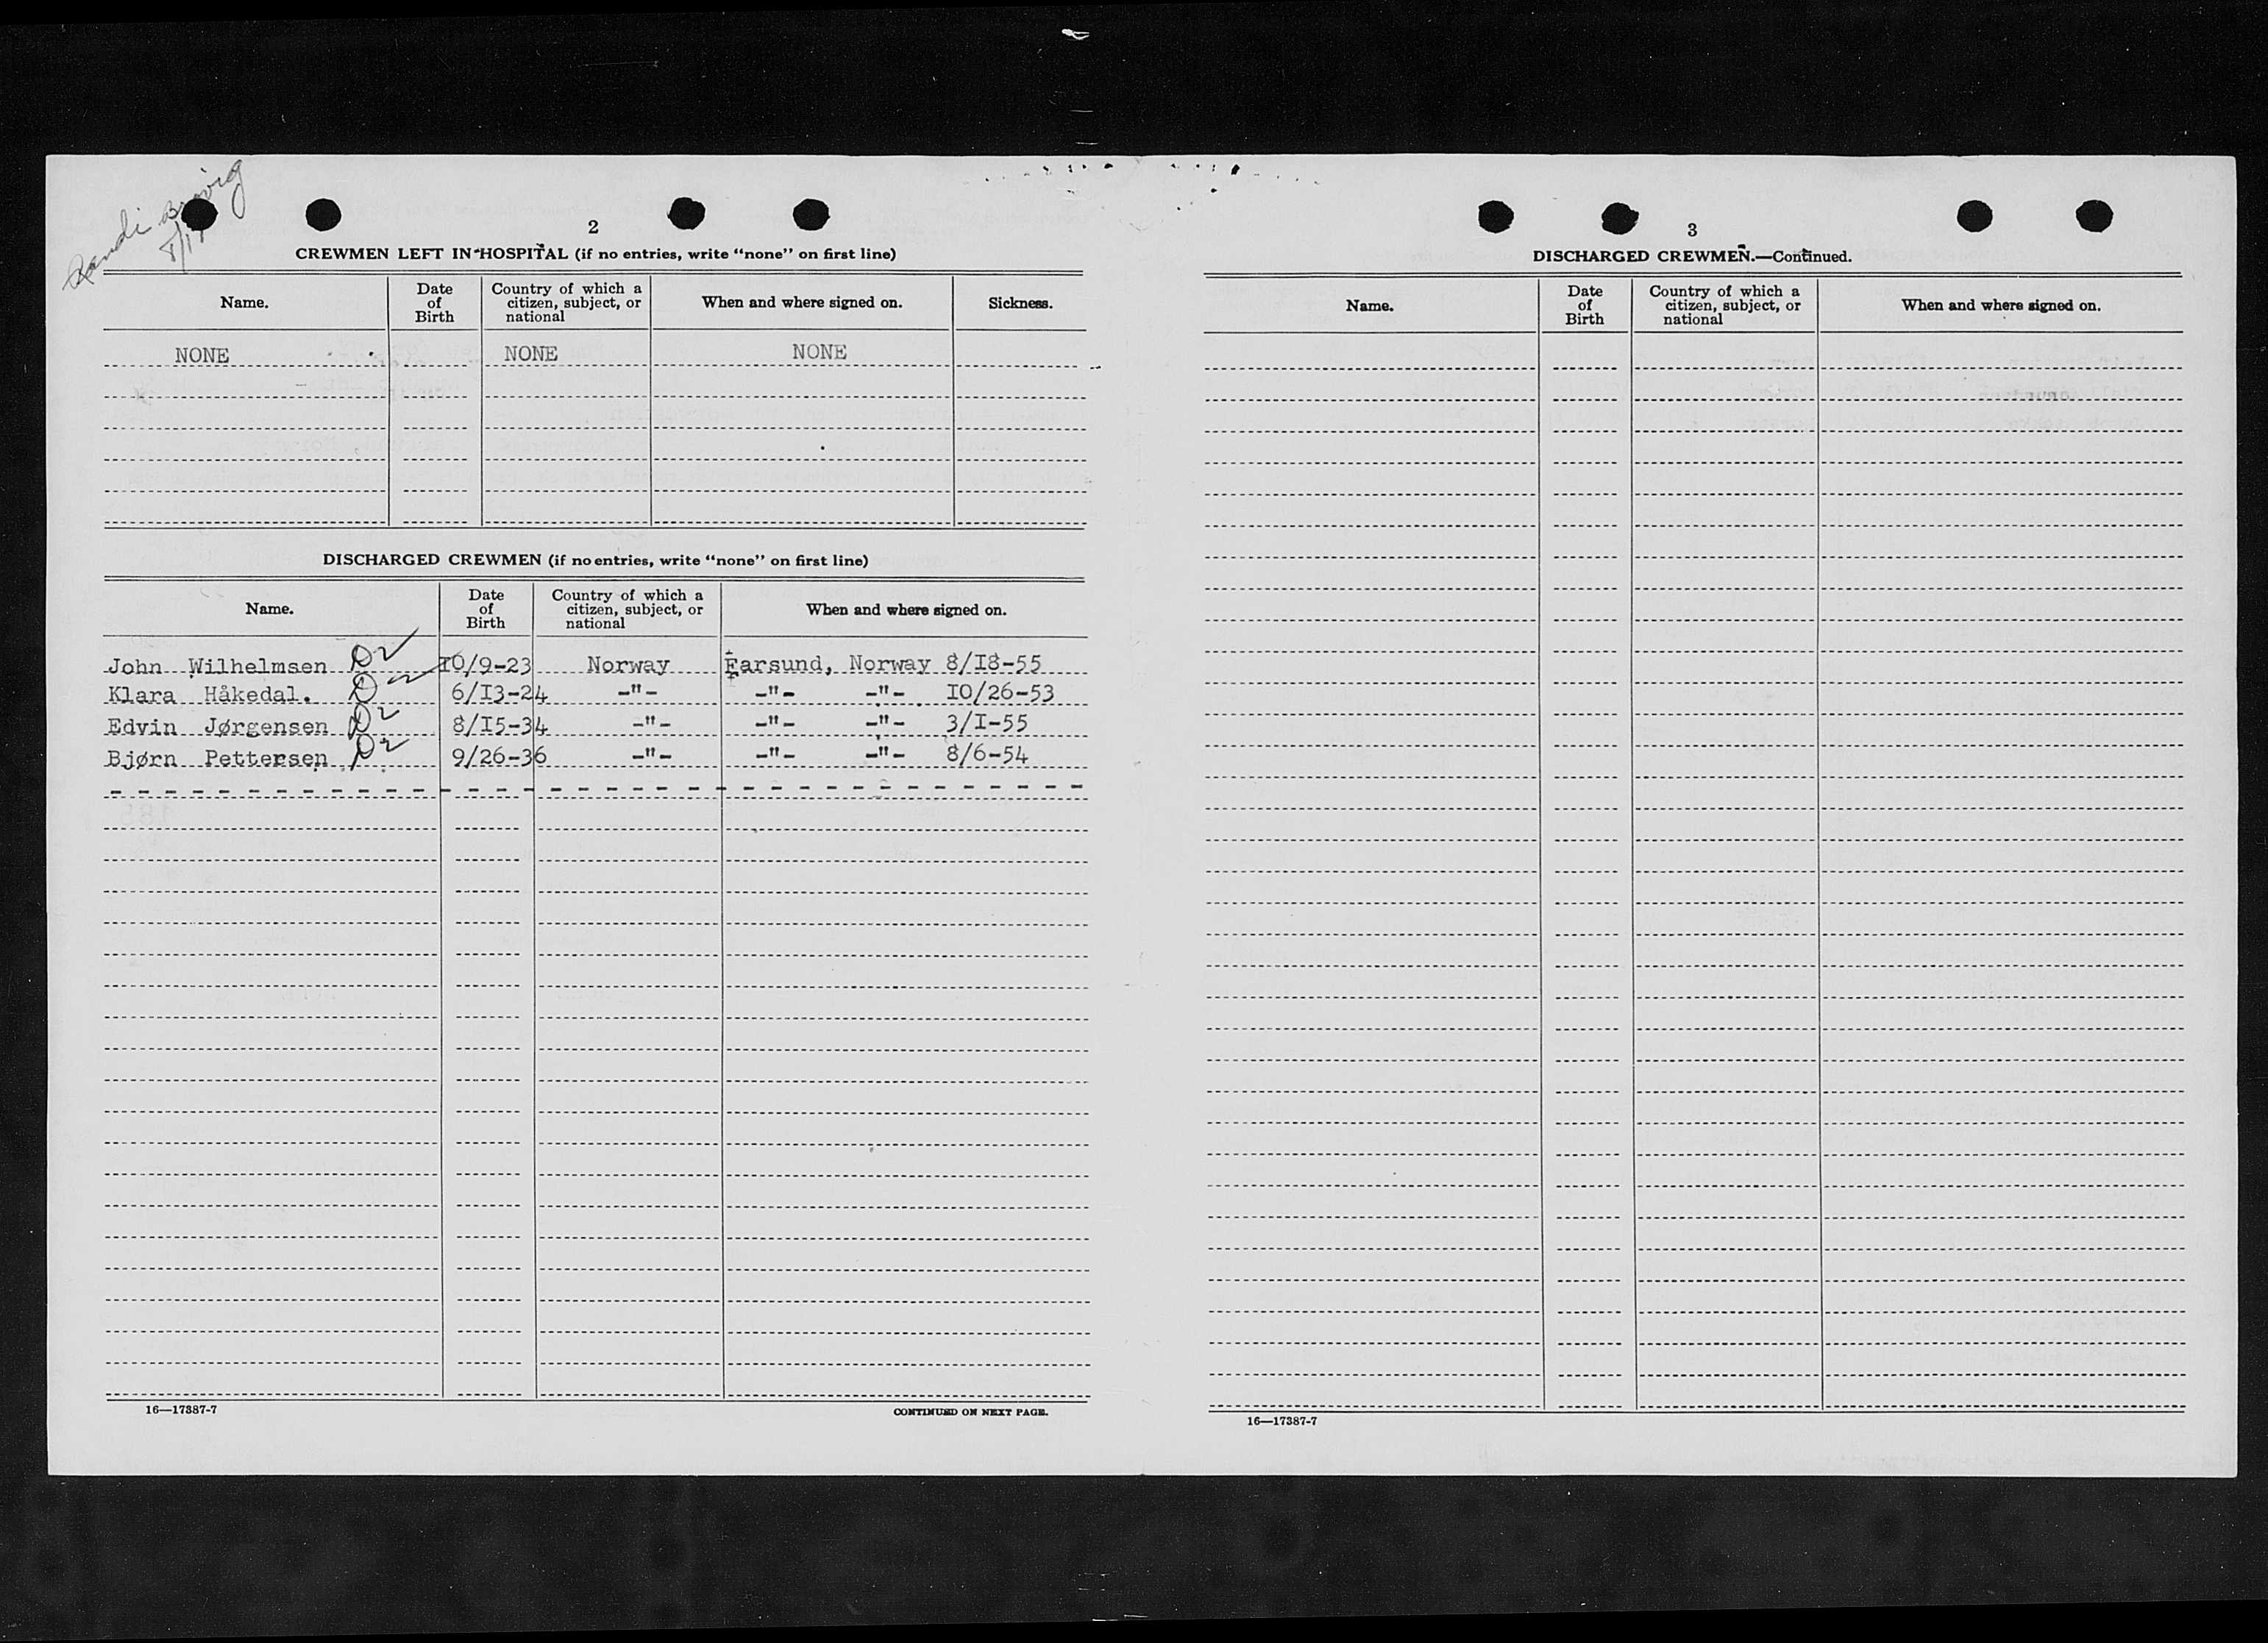 Randi Brøvig
8/17
2
CREWMEN LEFT IN HOSPITAL (if no entries, write “none” on first line)
Name. Date of Birth Country of which a citizen, subject, or national When and where signed on. Sickness.
NONE NONE NONE
DISCHARGED CREWMEN (if no entries, write “none” on first line)
Name. Date of Birth Country of which a citizen, subject, or national When and where signed on.
John Wilhelmsen D2 10/9-23 Norway Farsund, Norway 8/I8-55
Klara Håkedal. D 6/I3-24 -"- -"- -"- IO/26-53
Edvin Jørgensen D2 8/I5-34 -"- -"- -"- 3/I-55
Bjørn Pettersen D2 9/26-36 -"- -"- -"- 8/6-54
16—17387-7 CONTINUED ON NEXT PAGE.
3
DISCHARGED CREWMEN.—Continued.
Name. Date of Birth Country of which a citizen, subject, or national When and where signed on.
16—17387-7